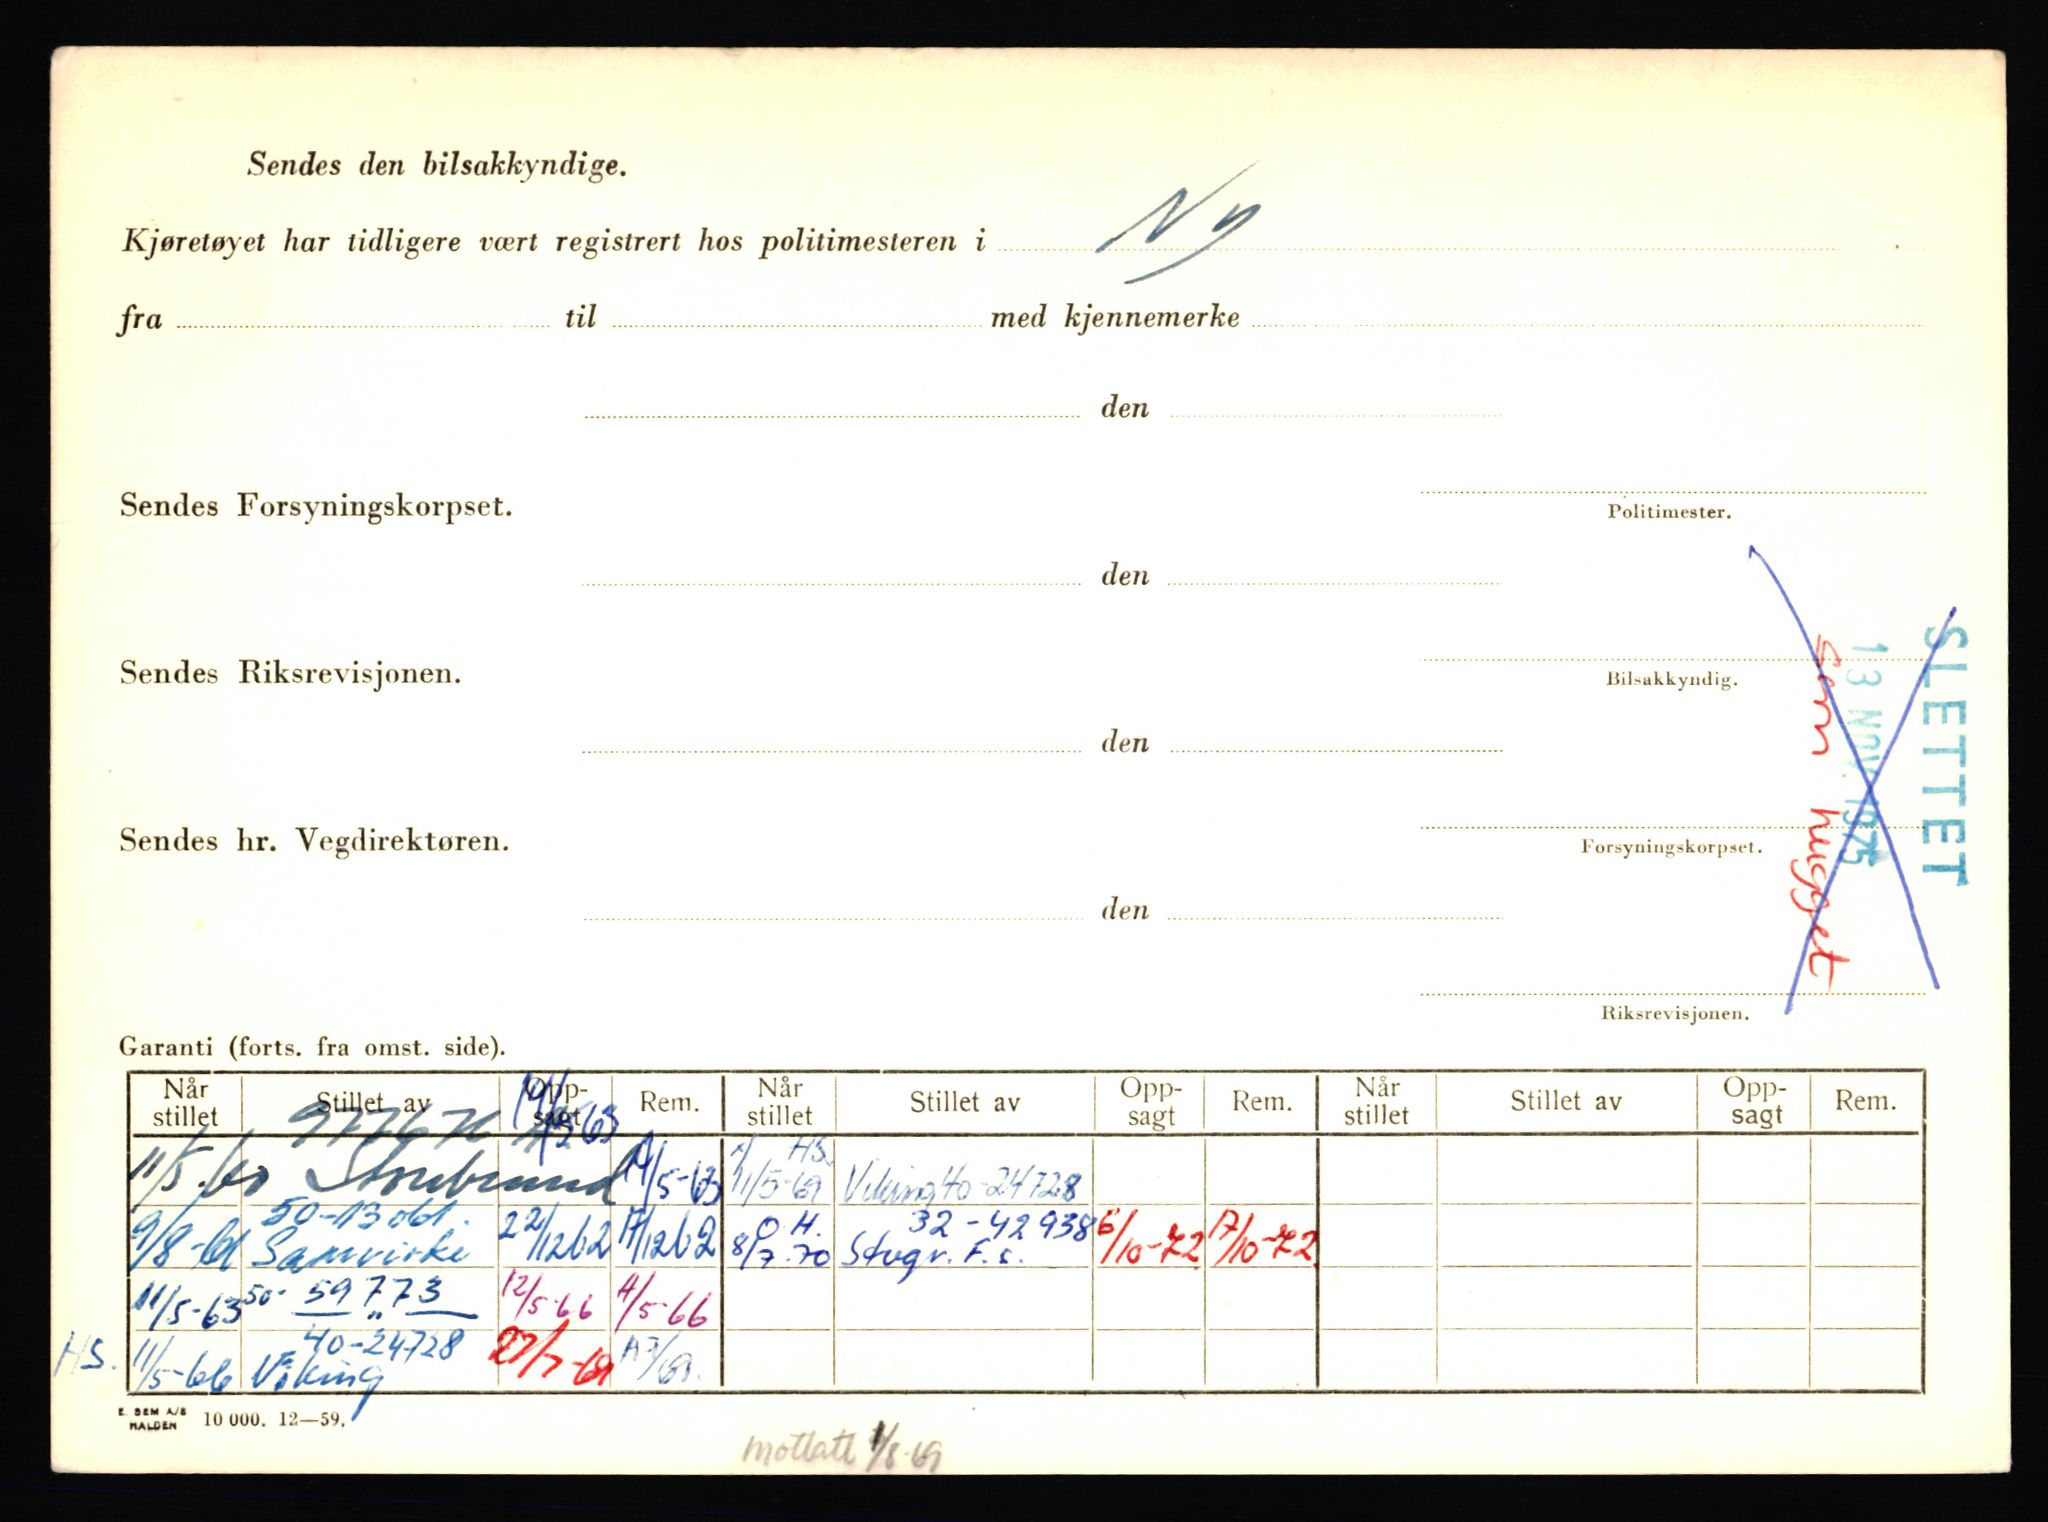 Sendes den bilsakkyndige.
Kjøretøyet har tidligere vært registrert hos politimesteren i Ny
fra til med kjennemerke
den
Politimester.
Sendes Forsyningskorpset.
den
Bilsakkyndig.
Sendes Riksrevisjonen.
den
Forsyningskorpset.
Sendes hr. Vegdirektøren.
den
Riksrevisjonen.
SLETTET
13 NOV. 1975
som hugget
Garanti (forts. fra omst. side).
Når stillet Stillet av Opp-sagt Rem. Når stillet Stillet av Opp-sagt Rem. Når stillet Stillet av Opp-sagt Rem.
97767
11/5-60 Storebrand 4/5-63 HS. 11/5-69 Viking 40-24728
50-13061. 32-42938
9/8-61 Samvirke 22/1262 17/1262 O.H. 8/7-70 Stvgr. F.s. 6/10-72 17/10-72
11/5-63 50-59773 " 12/5-66 4/5-66
40-24728
HS. 11/5-66 Viking 27/7-69
E. SEM A/S HALDEN 10 000. 12—59.
Mottatt 1/8-69